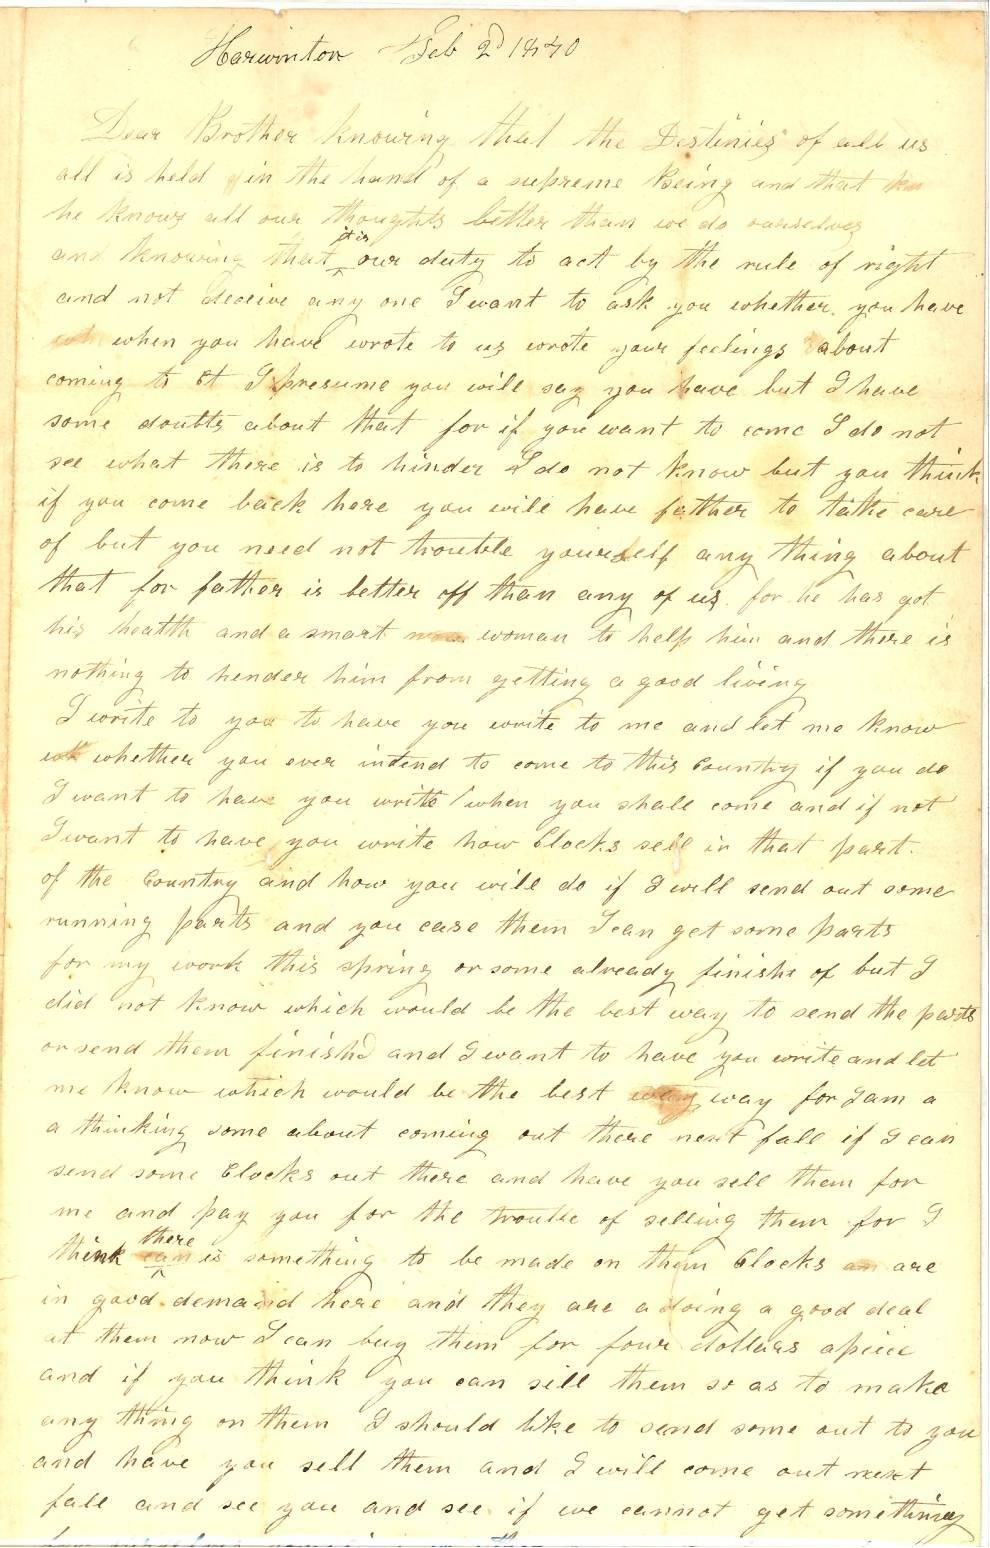 Harwinton Feb 2d 1840
Dear Brother knowing that the Destinies of all us
all is held in the hand of a supreme Being and that
he knows all our thoughts better than we do ourselves
and knowing that it is our duty to act by the rule of right
and not deceive any one I want to ask you whether you have
when you have wrote to us wrote your feelings about
coming to Ct I presume you will say you have but I have
some doubts about that for if you want to come I do not
see what there is to hinder I do not know but you think
if you come back here you will have father to take care
of but you need not trouble yourself any thing about
that for father is better off than any of us for he has got
his health and a smart woman to help him and there is
nothing to hender him from getting a good living
I write to you to have you write to me and let me know
whether you ever intend to come to this Country if you do
I want to have you write when you shall come and if not
I want to have you write how Clocks sell in that part
of the Country and how you will do if I will send out some
running parts and you case them I can get some parts
for my work this spring or some already finishd of but I
did not know which would be the best way to send the parts
or send them finishd and I want to have you write and let
me know which would be the best way way for I am a
a thinking some about coming out there next fall if I can
send some Clocks out there and have you sell them for
me and pay you for the trouble of selling them for I
think there is something to be made on them Clocks are
in good demand here and they are a doing a good deal
at them now I can buy them for four dollars apiece
and if you think you can sill them so as to make
any thing on them I should like to send some out to you
and have you sell them and I will come out next
fall and see you and see if we cannot get something